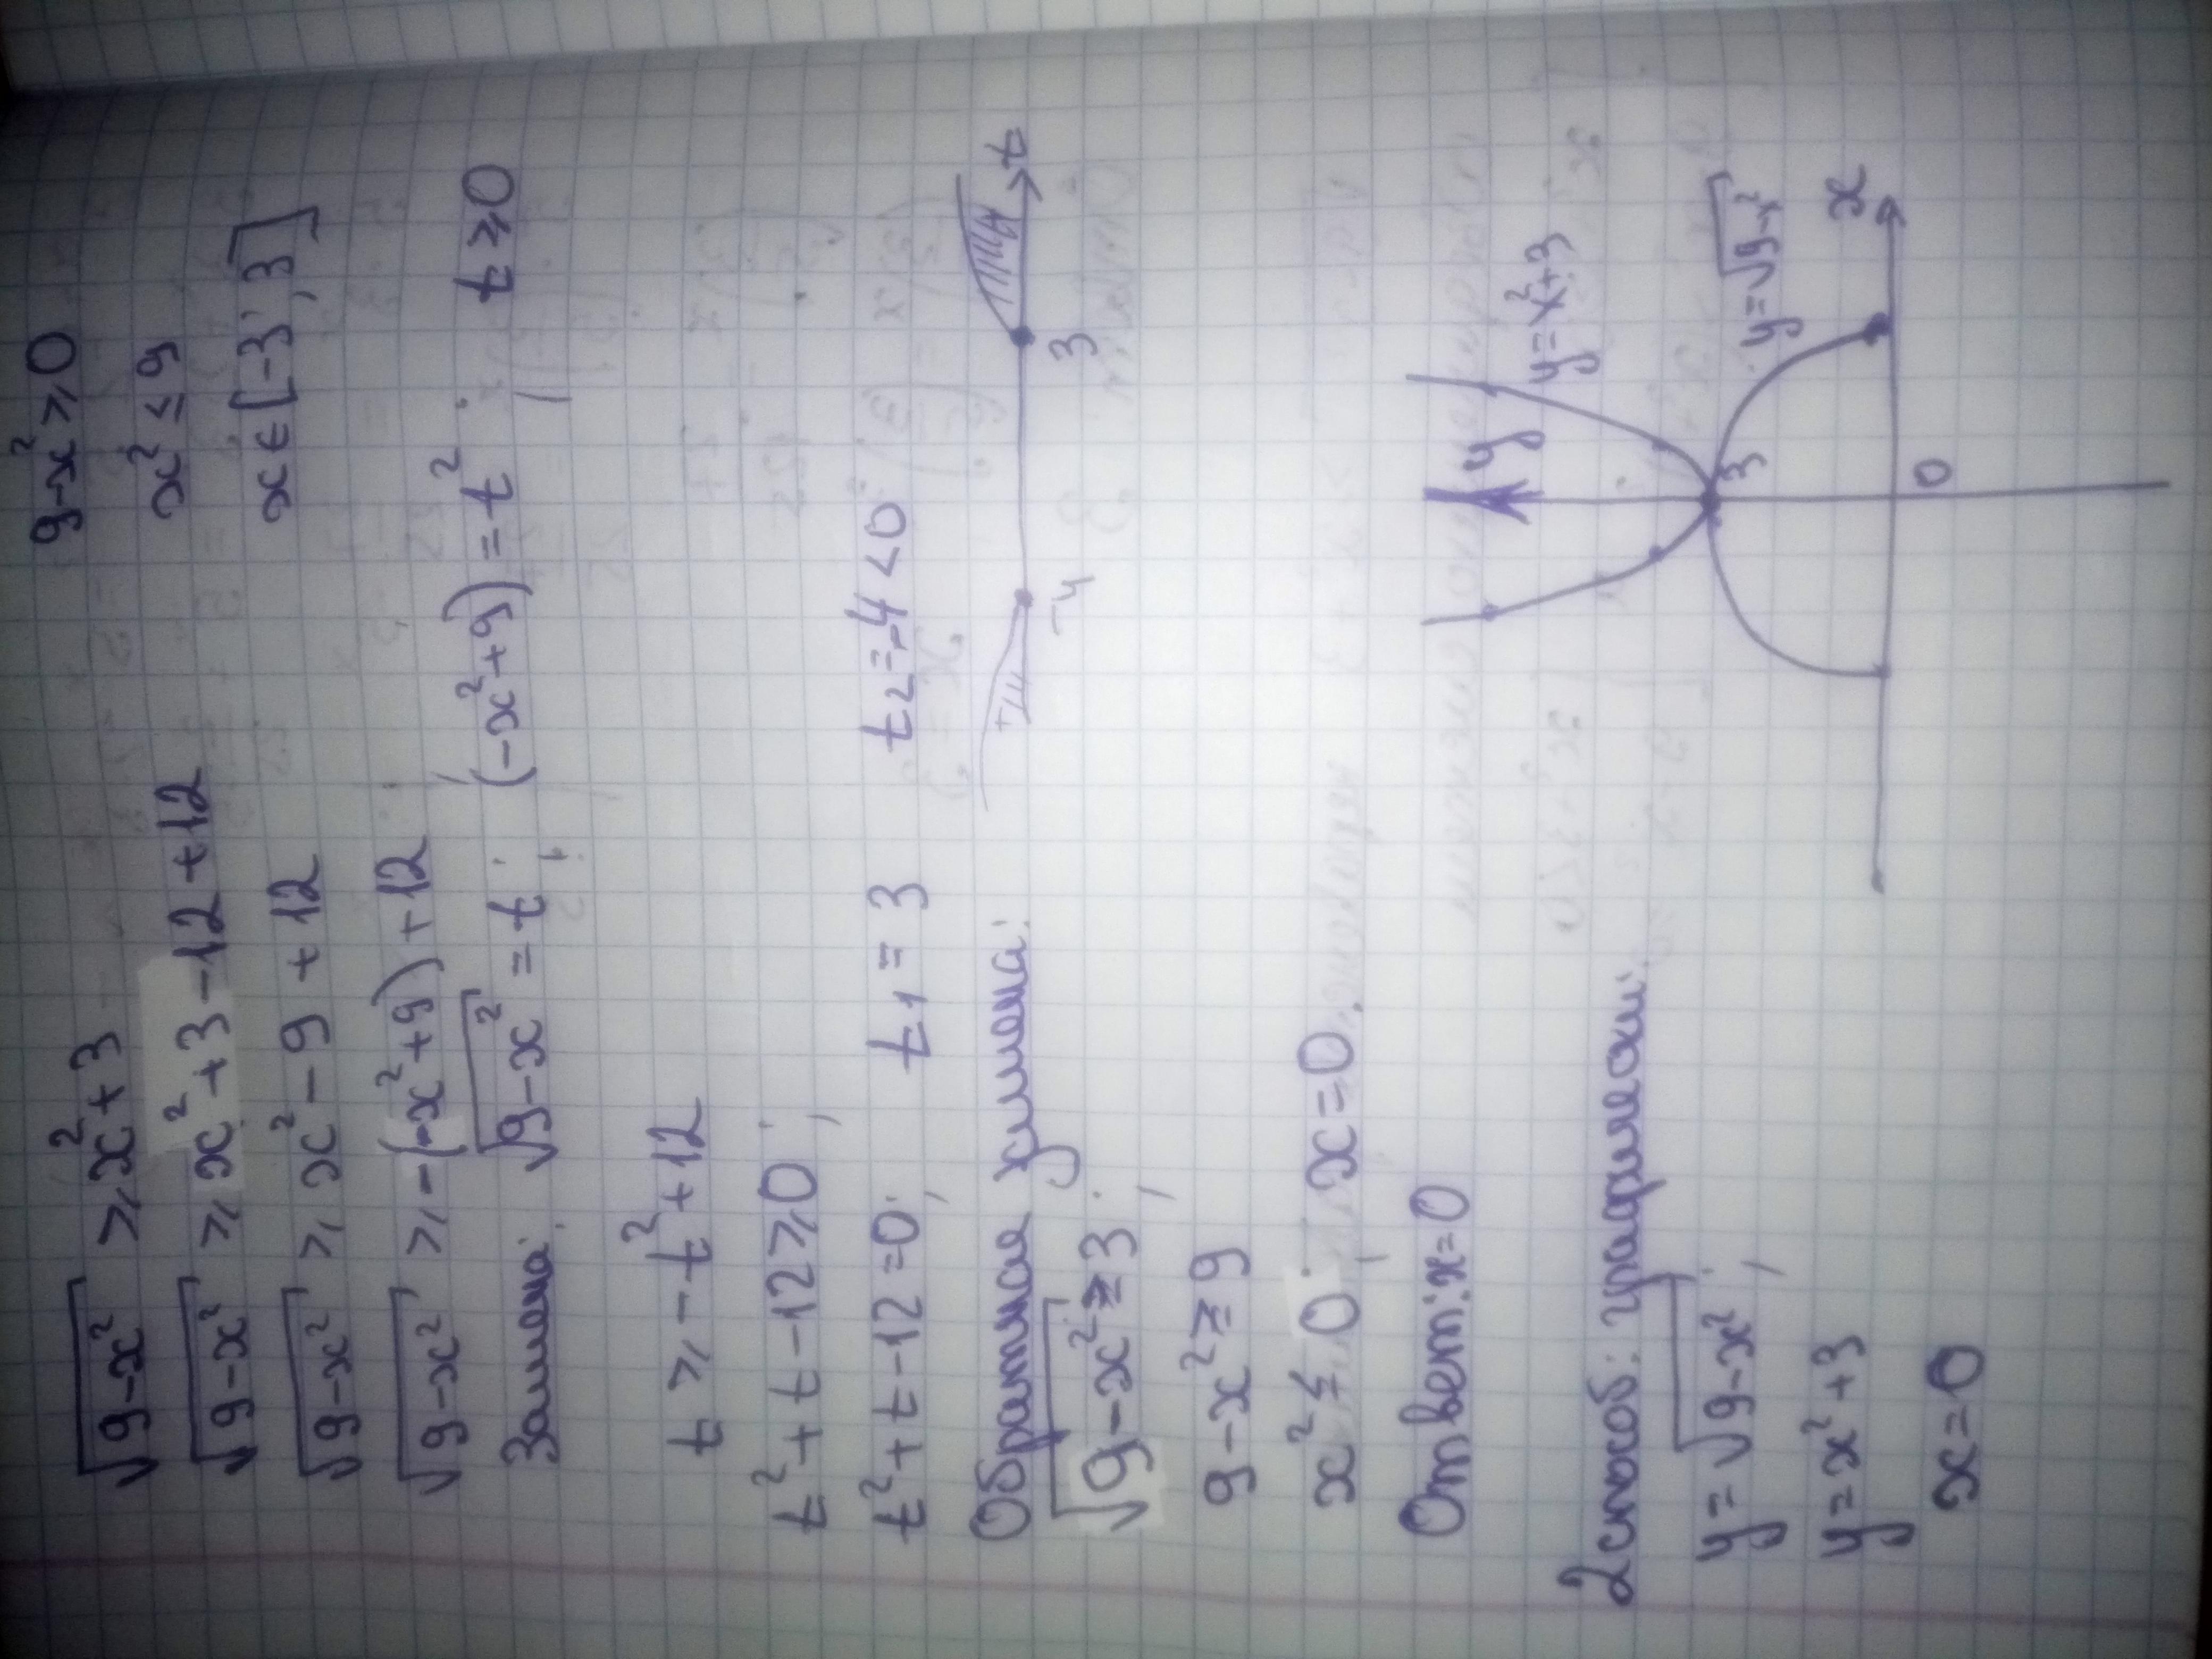 √9-x² ⩾ x²+3   9-x² ⩾ 0
√9-x² ⩾ x²+3-12+12   x² ≤ 9
√9-x² ⩾ x²-9+12   x∈[-3; 3]
√9-x² ⩾ -(-x²+9)+12
Замена: √9-x² = t; (-x²+9) = t²; t ⩾ 0
t ⩾ -t²+12
t²+t-12 ⩾ 0;
t²+t-12=0;   t₁=3   t₂=-4<0
Обратная замена:
-4   3   t
√9-x² ≥ 3;
9-x² ≥ 9
x² ≤ 0;   x=0.
Ответ: x=0
2 способ: графический:
y=√9-x²;
y=x²+3
x=0
y
y=x²+3
3
y=√9-x²
x
0